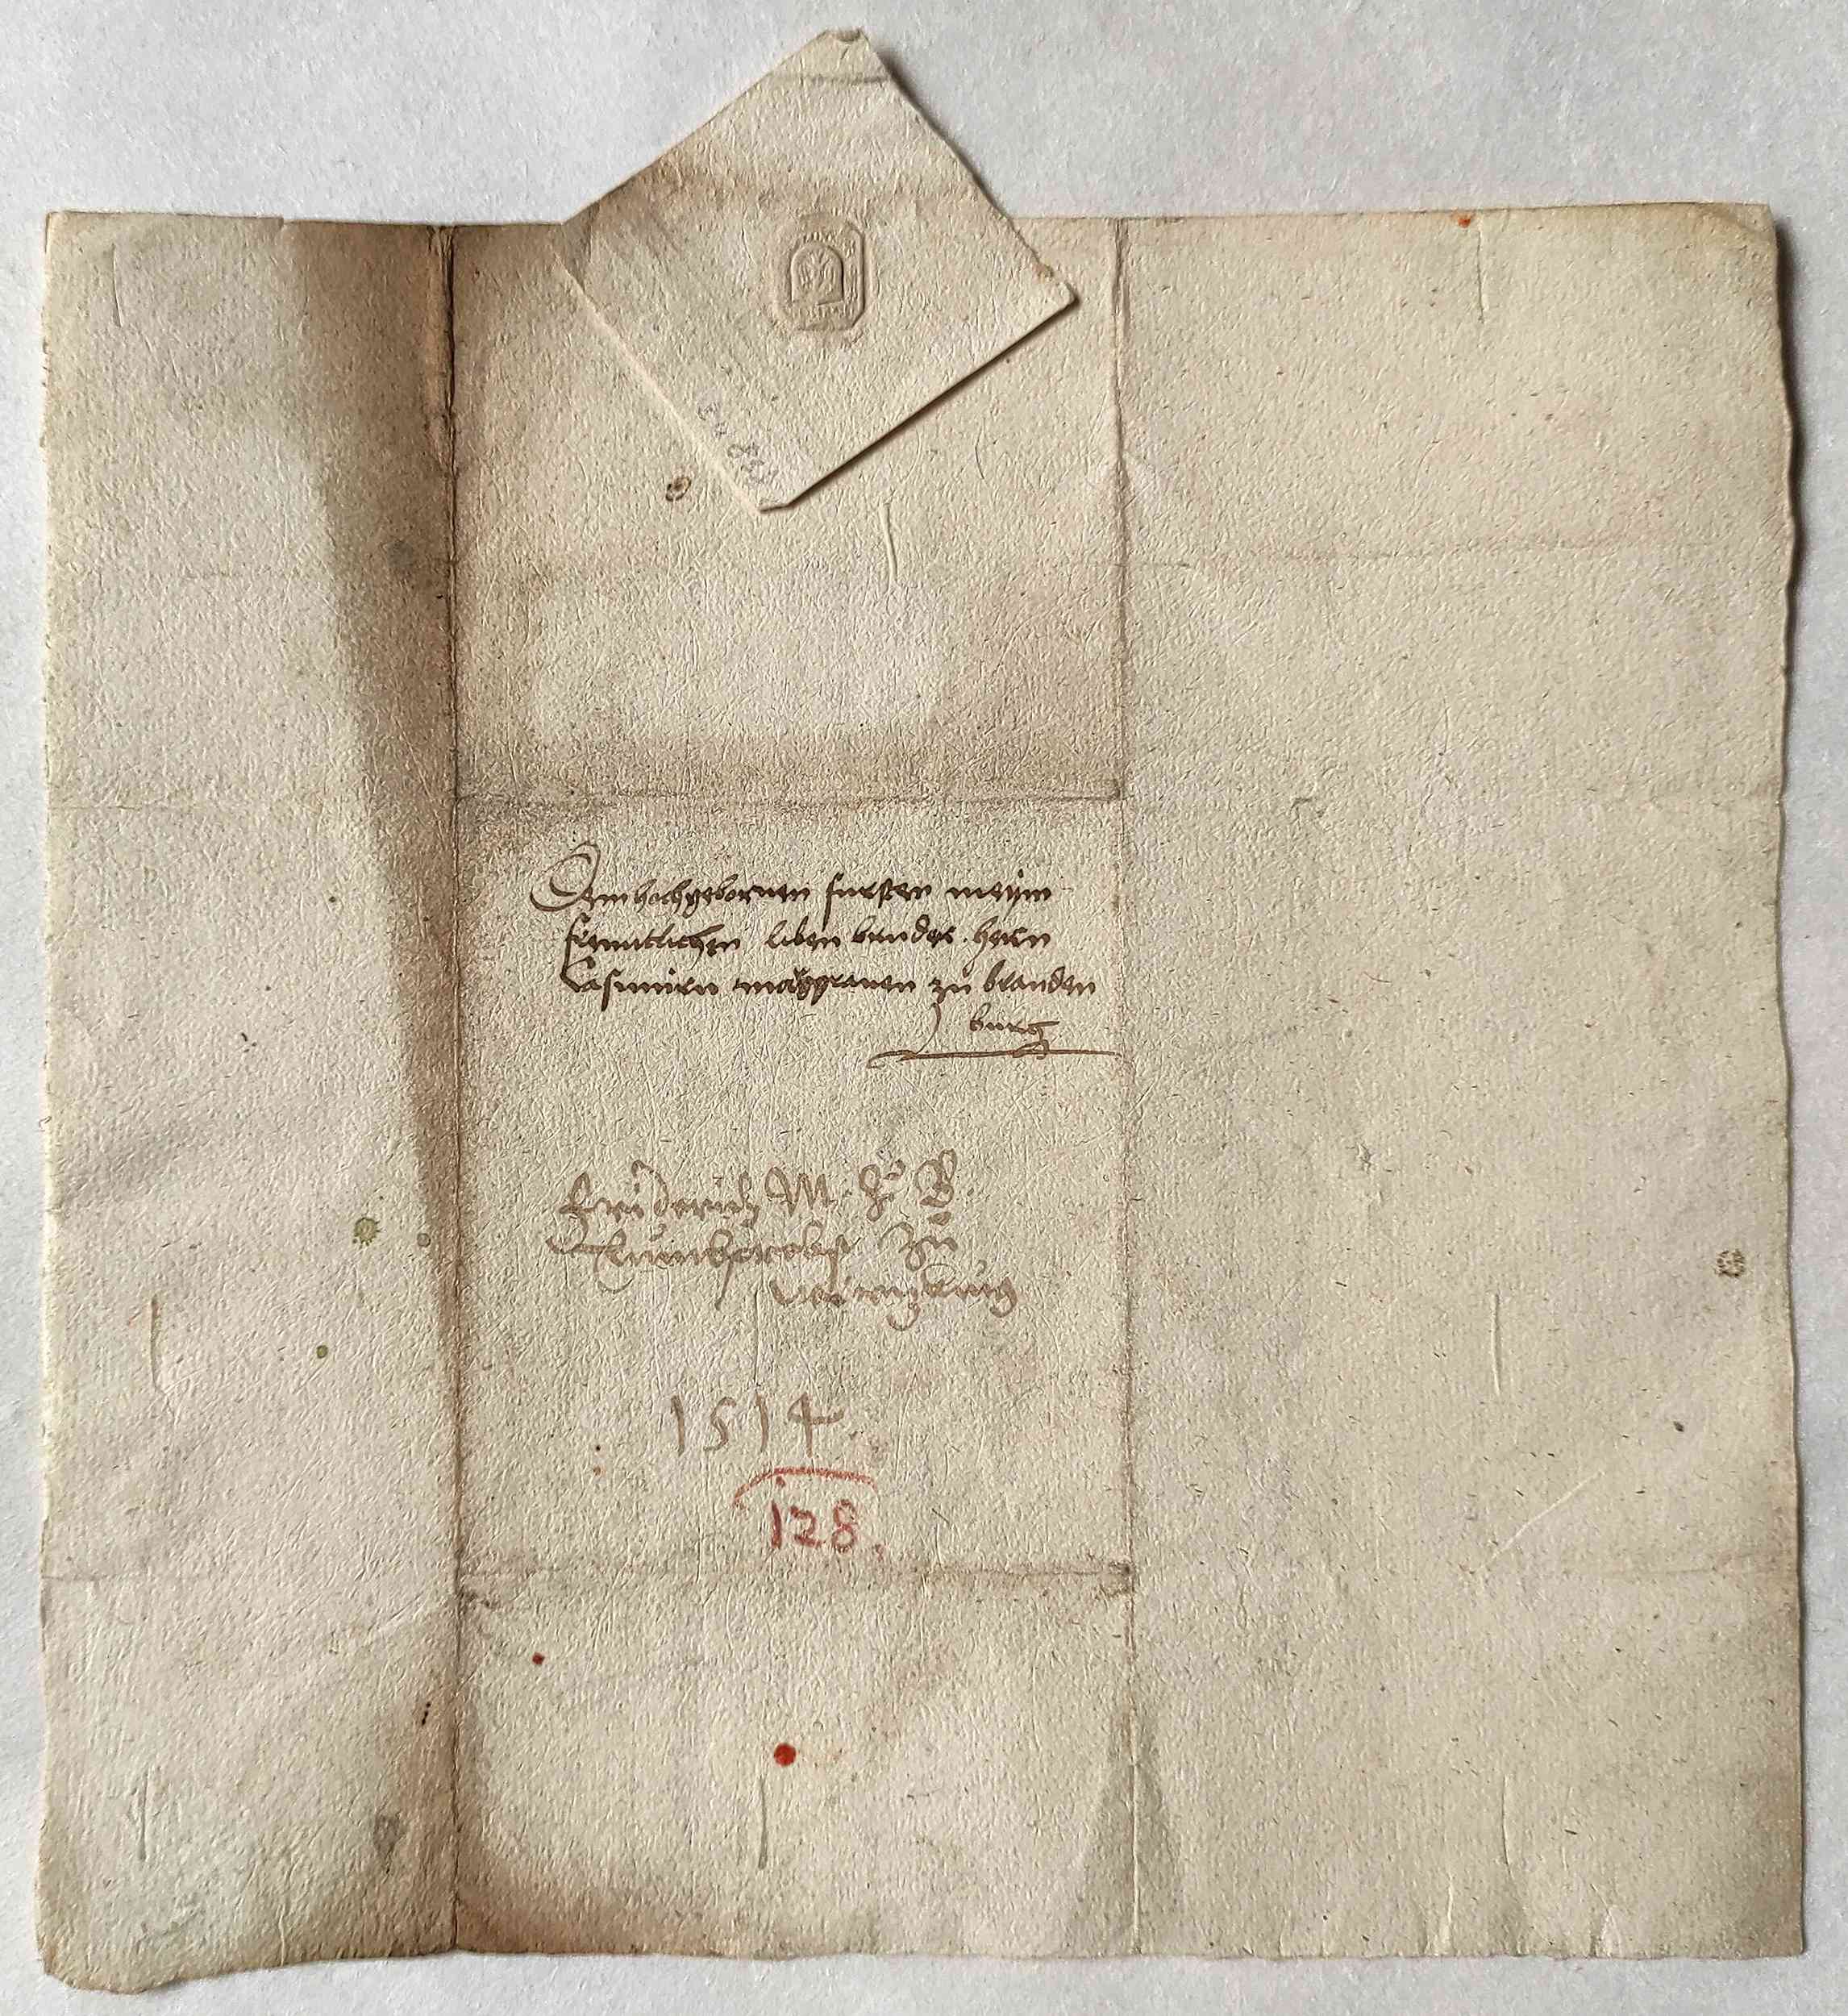 Dem hochgebornen fursten meym
freuntlichen liben bruder hern
Casimirn marggrauen zů branden
burg
Friderich M. Z. B.
Thumbprobst zů
wirtzburg
1514.
128.